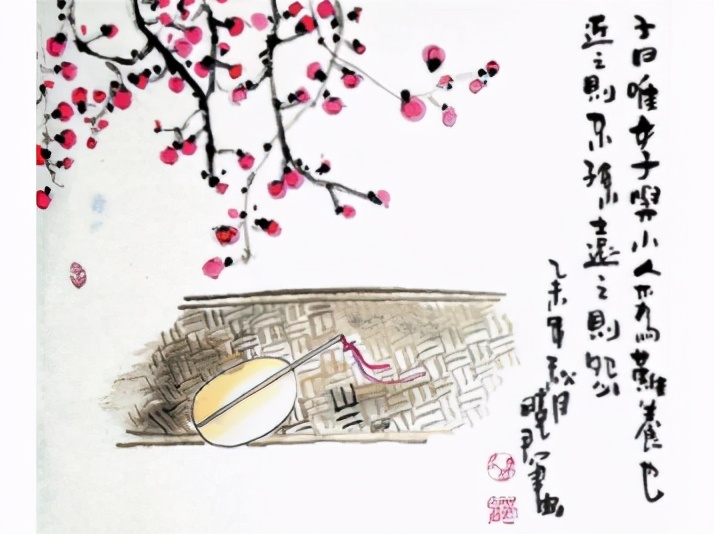 子曰唯女子與小人為難養也
近之則不孫遠之則怨
乙未年秋月